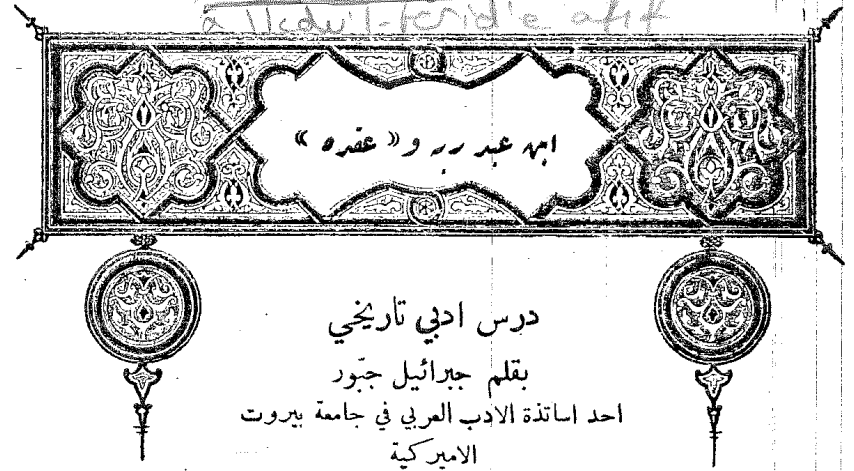 a Ikdu'l-ferid'e atıf
ابن عبد ربه و« عقده »
درس ادبي تاريخي
بقلم جبرائيل جبّور
احد اساتذة الادب العربي في جامعة بيروت
الاميركية